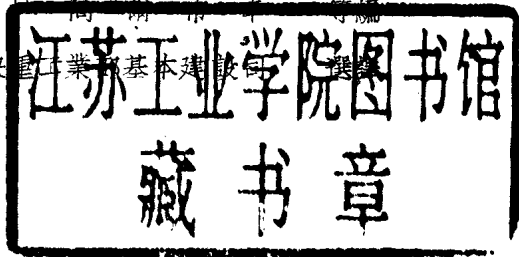 等編
重工業部基本建設局 選譯
江苏工业学院图书馆
藏书章